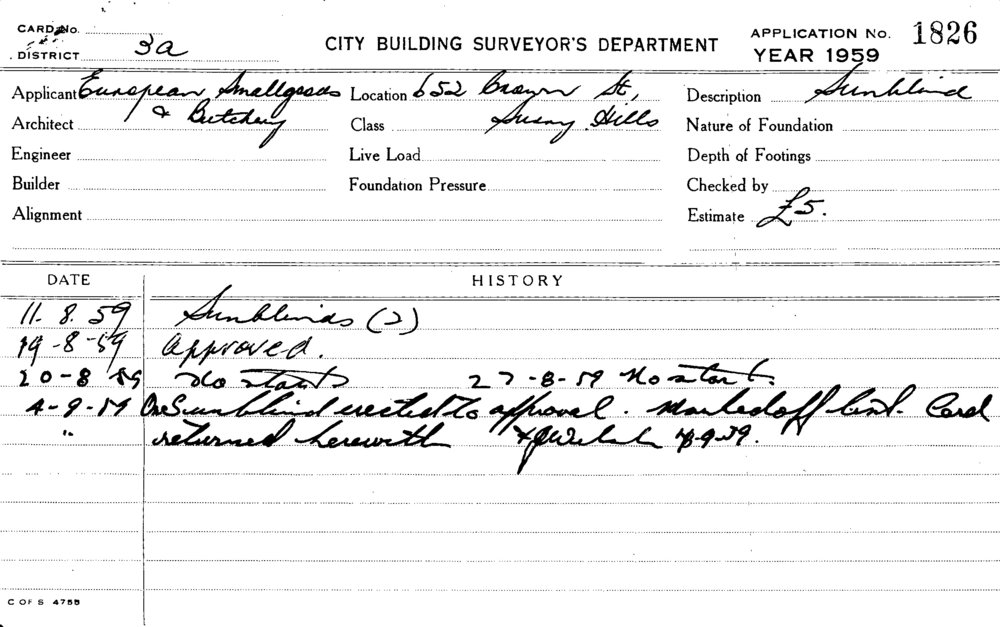 CARD No.
DISTRICT 3a
CITY BUILDING SURVEYOR'S DEPARTMENT
APPLICATION No. 1826
YEAR 1959
Applicant European Smallgoods
& Butchery
Location 652 Crown St,
Surry Hills
Description Sunblind
Architect
Class
Nature of Foundation
Engineer
Live Load
Depth of Footings
Builder
Foundation Pressure
Checked by
Alignment
Estimate £5.
DATE HISTORY
11. 8. 59 Sunblinds (2)
19-8-59 Approved.
20-8 59 No start 27-8-59 No start.
4-9-59 One Sunblind erected to approval. Marked off list. Card
" returned herewith 4-9-59.
C OF S 4755